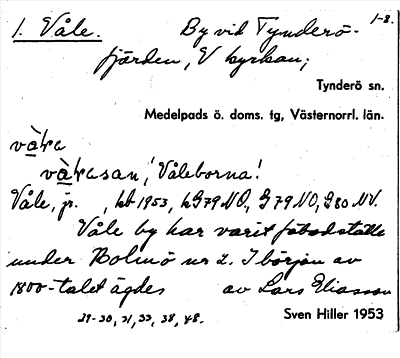 1. Våle. By vid Tynderö- 1-2.
fjärden, V kyrkan;
Tynderö sn.
Medelpads ö. doms. tg, Västernorrl. län.
våʹɾa
våʹɾasan, 'Våleborna'.
Våle, jr. , kb 1953, hG79 NO, G79NO, G80 NV.
Våle by har varit fäbodställe
under Holmö nr 2. I början av
1800-talet ägdes av Lars Eliasson
29-30, 31, 33, 38, 48.
Sven Hiller 1953